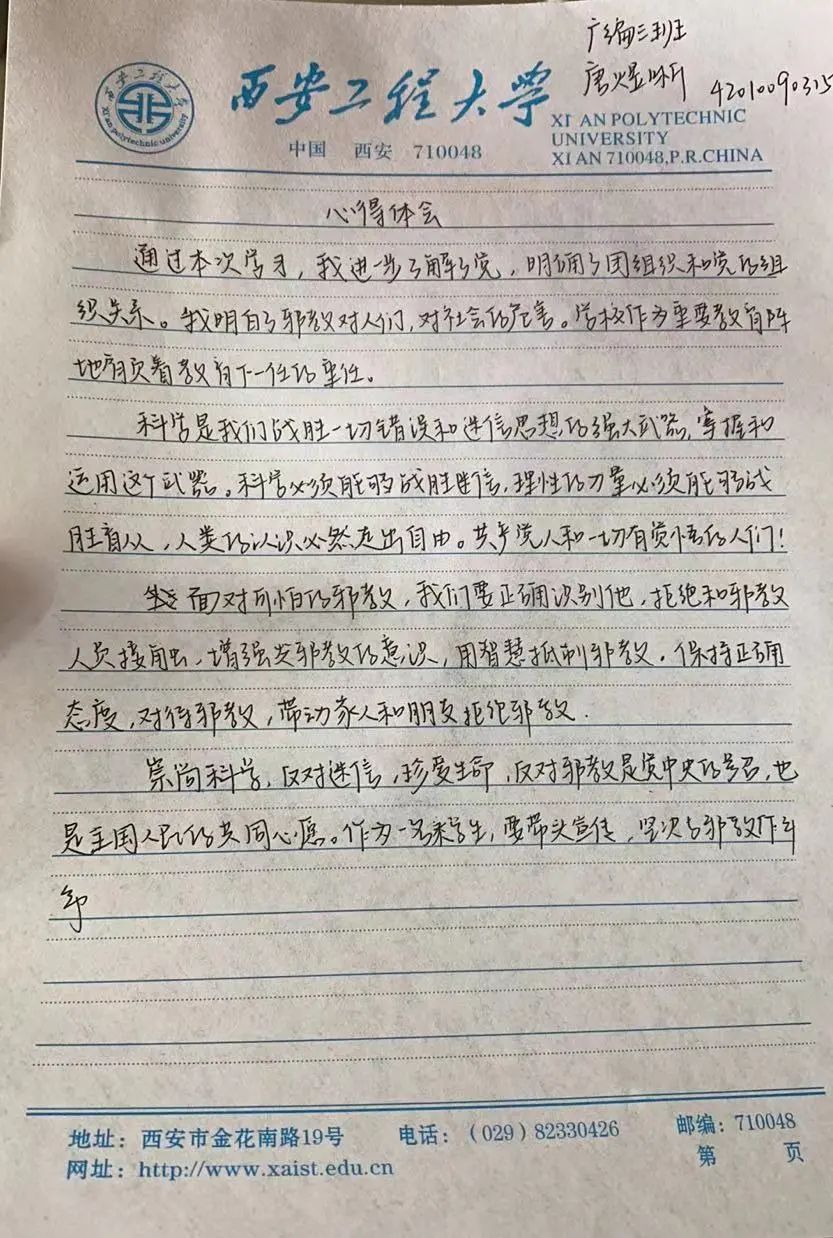 广编三班
唐煜昕 42010090315
西安工程大学
XI'AN POLYTECHNIC
UNIVERSITY
中国 西安 710048
XI AN 710048,P.R.CHINA
西安工程大学
xi'an polytechnic university
心得体会
通过本次学习，我进一步了解了党，明确了团组织和党的组
织关系。我明白了邪教对人们，对社会的危害。学校作为重要教育阵
地肩负着教育下一任的重任。
科学是我们战胜一切错误和迷信思想的强大武器，掌握和
运用这个武器。科学必须能够战胜迷信，理性的力量必须能够战
胜盲从，人类的认识必然走出自由。共产党人和一切有觉悟的人们！
面对可怕的邪教，我们要正确识别他，拒绝和邪教
人员接触，增强反邪教的意识，用智慧抵制邪教。保持正确
态度，对待邪教，带动家人和朋友拒绝邪教．
崇尚科学，反对迷信，珍爱生命，反对邪教是党中央的号召，也
是全国人民的共同心愿。作为一名学生，要带头宣传，坚决与邪教作斗
争
地址：西安市金花南路19号 电话：（029）82330426 邮编：710048
网址：http://www.xaist.edu.cn 第 页